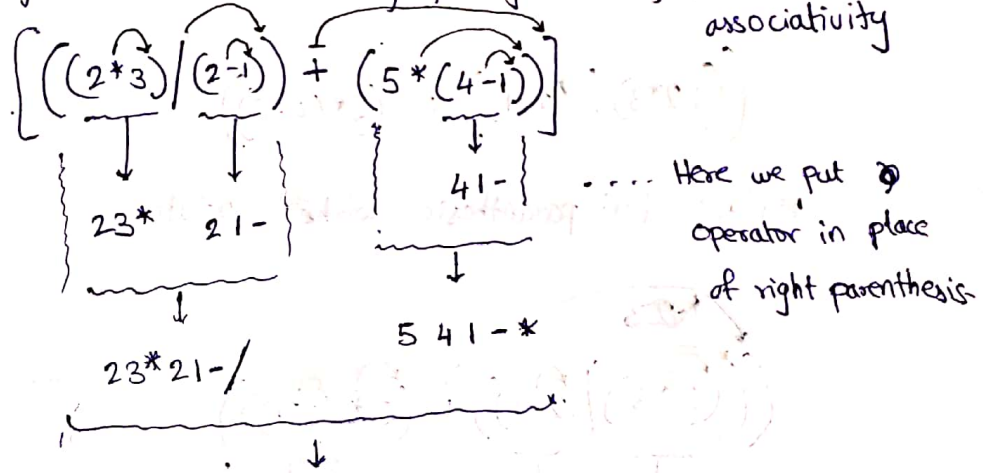 associativity
[((2*3)/(2-1)) + (5*(4-1))]
23* 21- 41-
.... Here we put
operator in place
of right parenthesis
23*21-/ 541-*